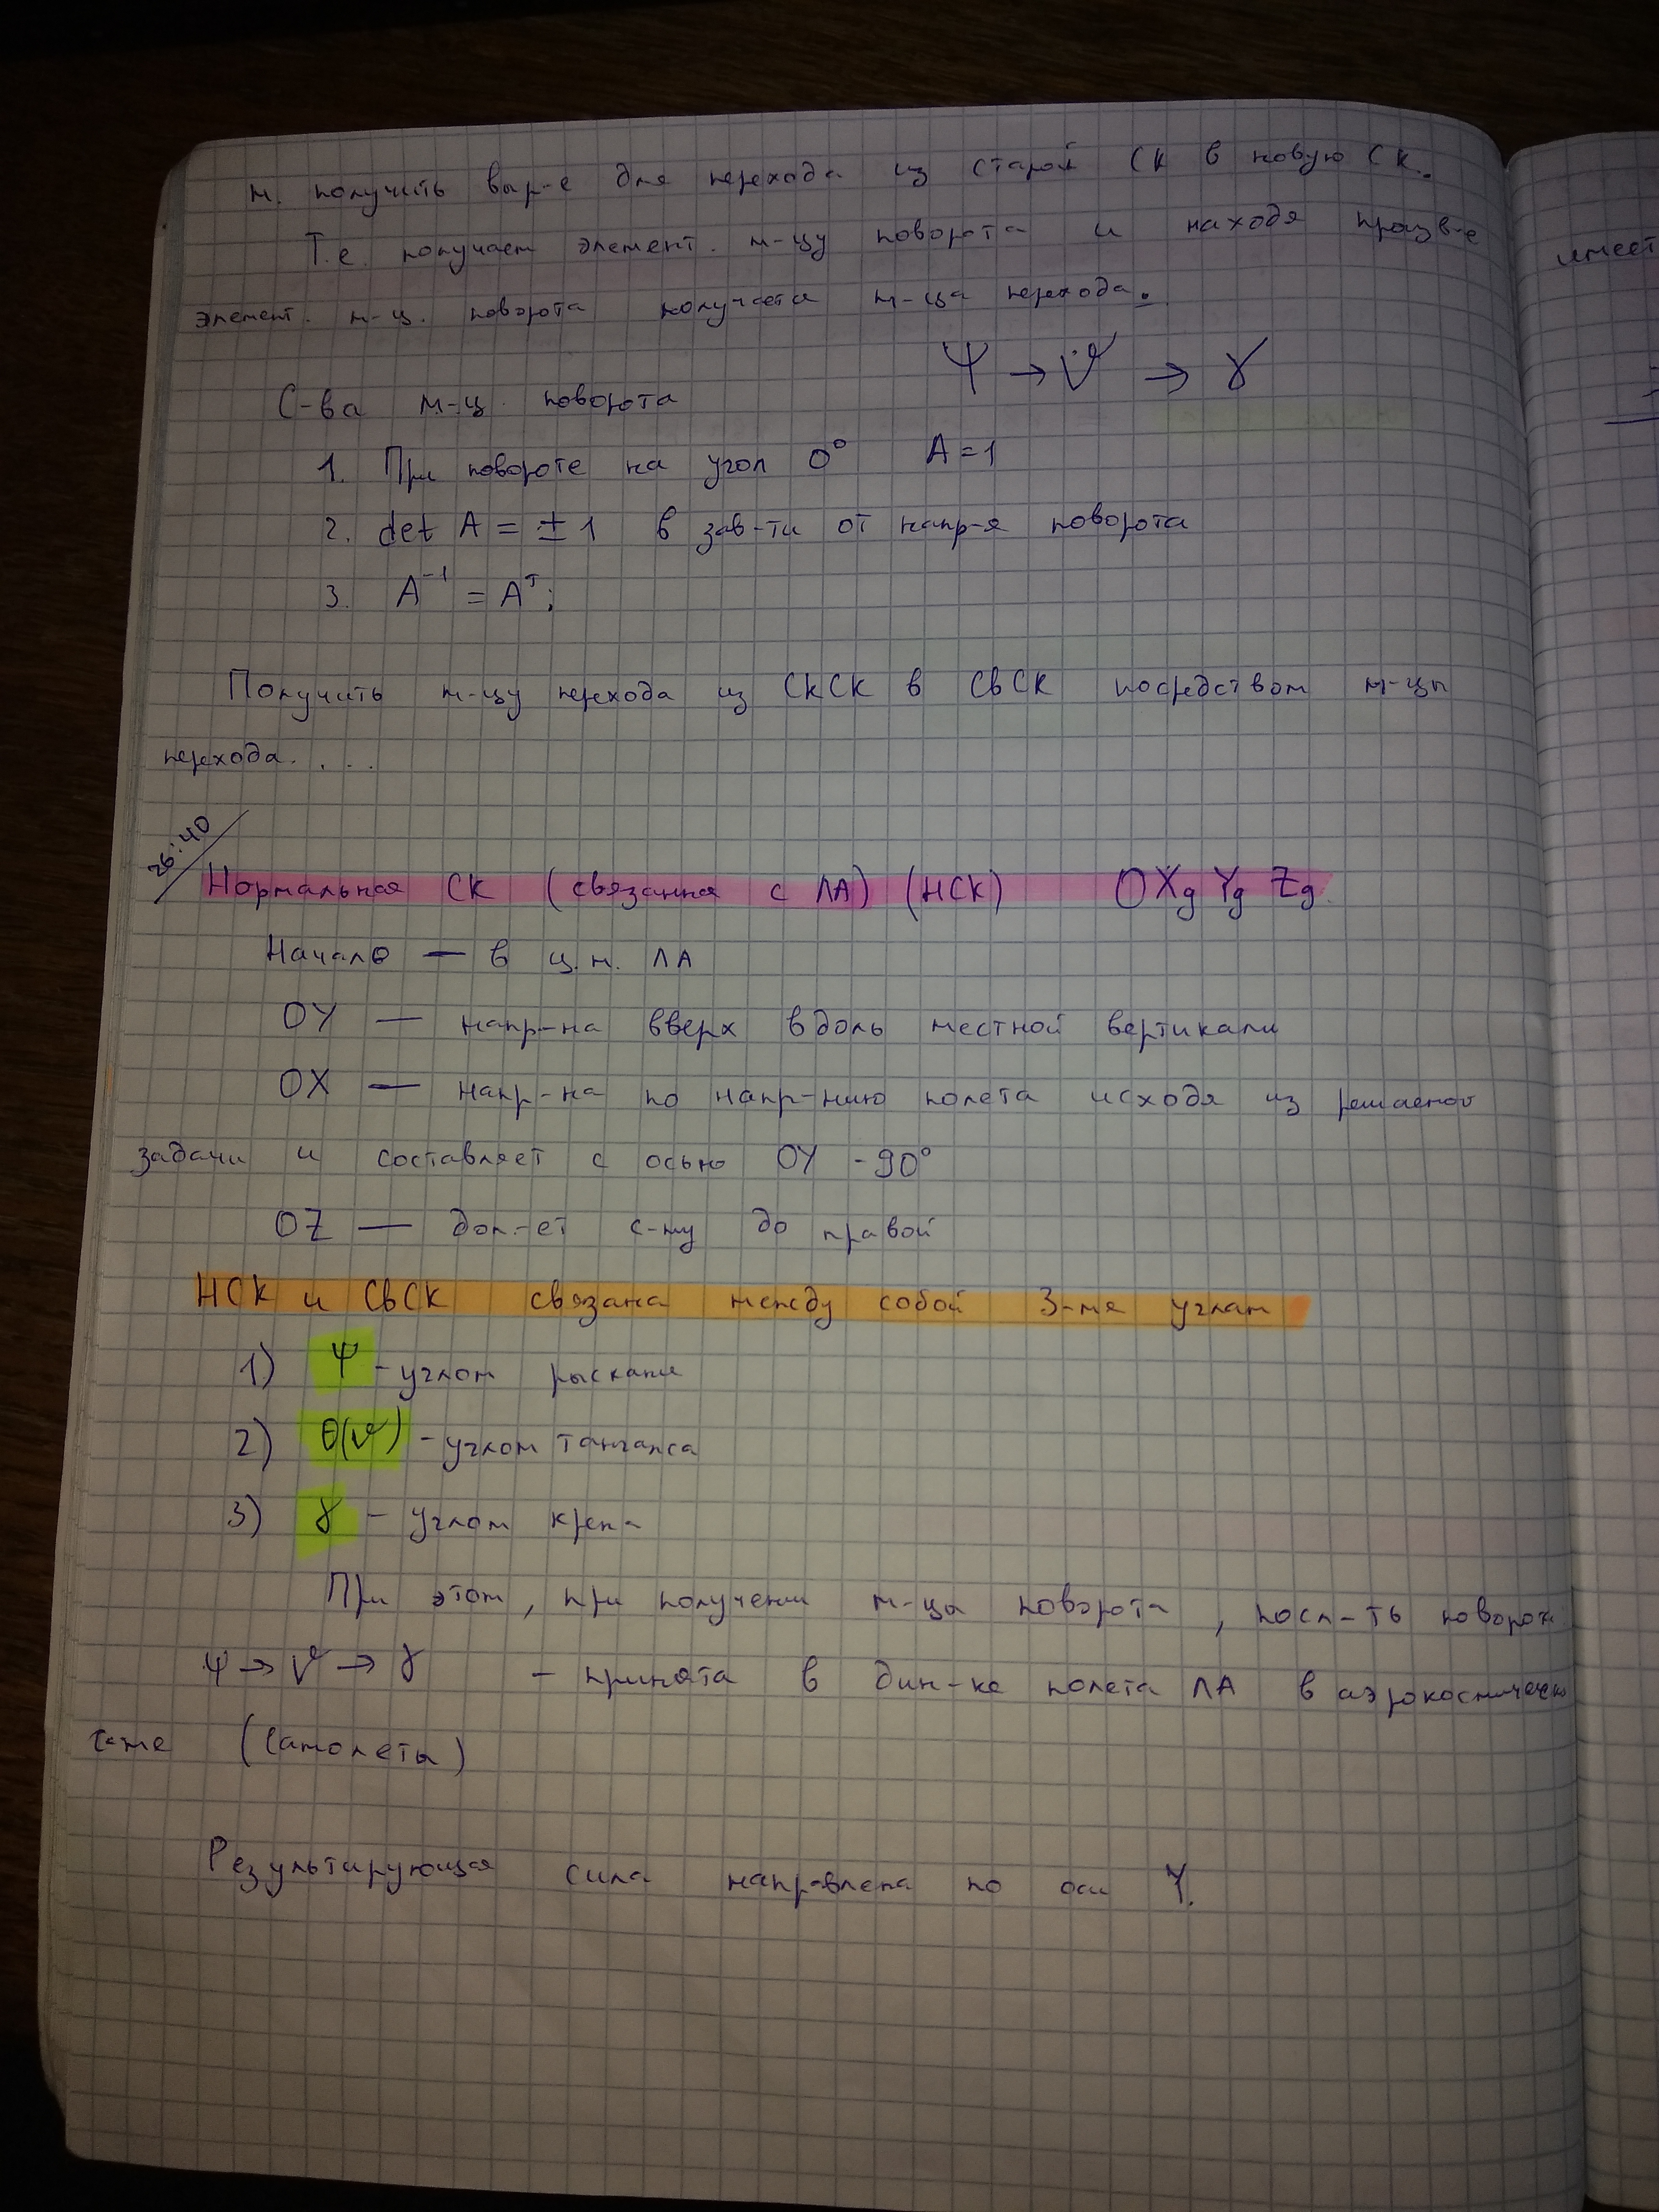 м. получить выр-е для перехода из старой СК в новую СК.
Т.е. получает элемент. м-цу поворота и находя произв-е
элемент. м-ц. поворота получается м-ца перехода.
Ψ → ϑ → γ
С-ва м-ц. поворота
1. При повороте на угол 0° A=1
2. det A = ± 1 в зав-ти от напр-я поворота
3. A⁻¹ = Aᵀ;
Получить м-цу перехода из СкСК в СвСК посредством м-цы
перехода. . . .
26:40
Нормальная СК (связанная с ЛА) (НСК) OXg Yg Zg
Начало — в ц.м. ЛА
OY — напр-на вверх вдоль местной вертикали
OX — напр-на по напр-нию полета исходя из решаемой
задачи и составляет с осью OY - 90°
OZ — доп-ет с-му до правой
НСК и СвСК связана между собой 3-мя углам
1) Ψ - углом рыскани
2) θ(ϑ) - углом тангажа
3) γ - углом крена
При этом, при получении м-цы поворота, посл-ть поворота
Ψ → ϑ → γ - принята в дин-ке полета ЛА в аэрокосмической
с-ме (самолеты)
Результирующая сила направлена по оси Y.
имеет